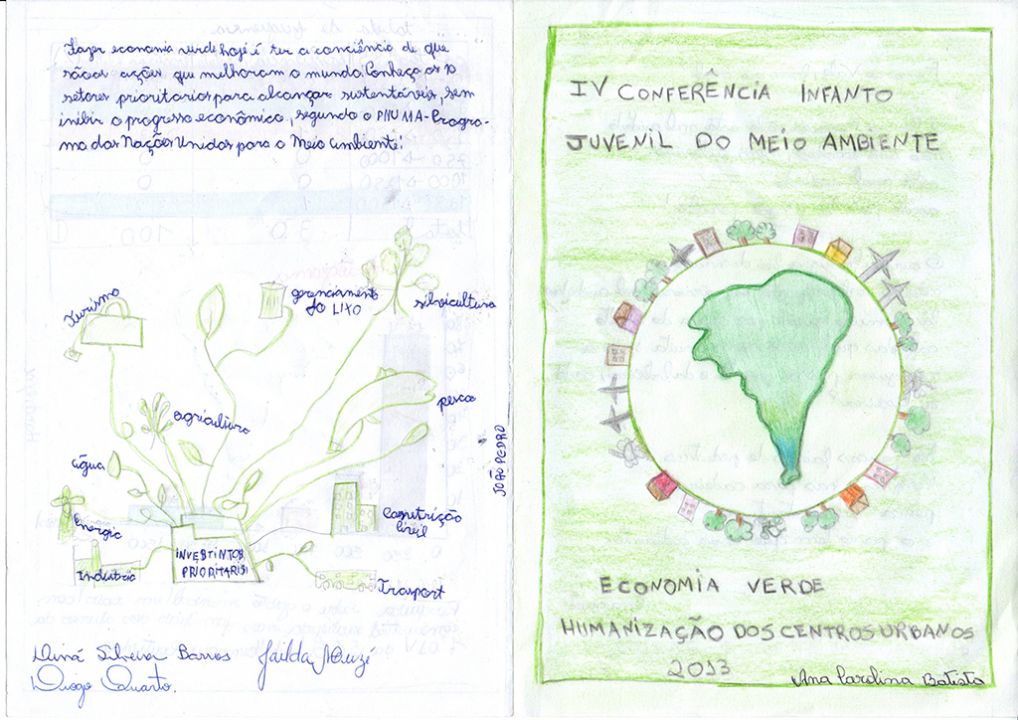 Fazer economia verde hoje é ter a conciência de que
são as ações que melhoram o mundo. Conheça os 10
setores prioritarios para alcançar sustentáveis, sem
inibir o progresso econômico, segundo o PNUMA-Progra-
ma das Nações Unidas para o Meio Ambiente:
Turismo
gerenciamento
DO LIXO
silvicultura
agricultura
pesca
água
Energia
Construção
Civil
INVESTINTOS
PRIORITARISI
Industria
Transport
JOÃO PEDRO
Silveira Barros
Diogo Duarte.
IV CONFERÊNCIA INFANTO
JUVENIL DO MEIO AMBIENTE
ECONOMIA VERDE
HUMANIZAÇÃO DOS CENTROS URBANOS
2013
Ana Carolina Batista